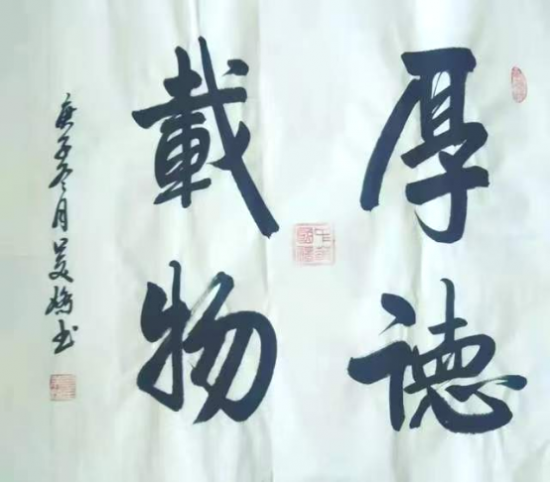 厚德
載物
庚子冬月吴梅书